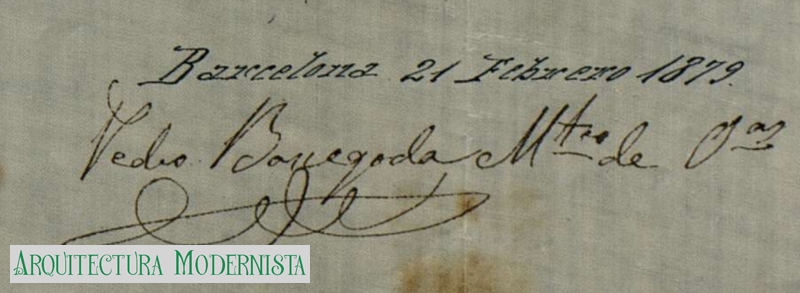 Barcelona 21 Febrero 1879.
Pedro Bassegoda Mtro de Oas
ARQUITECTURA MODERNISTA